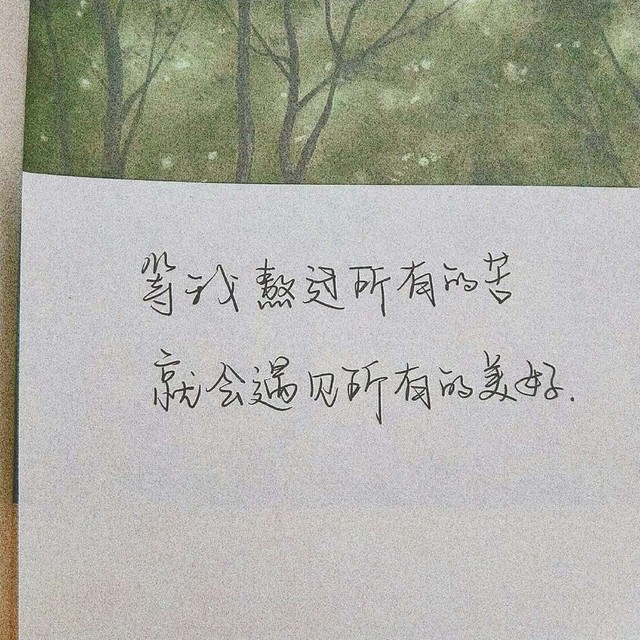 等我熬过所有的苦
就会遇见所有的美好.